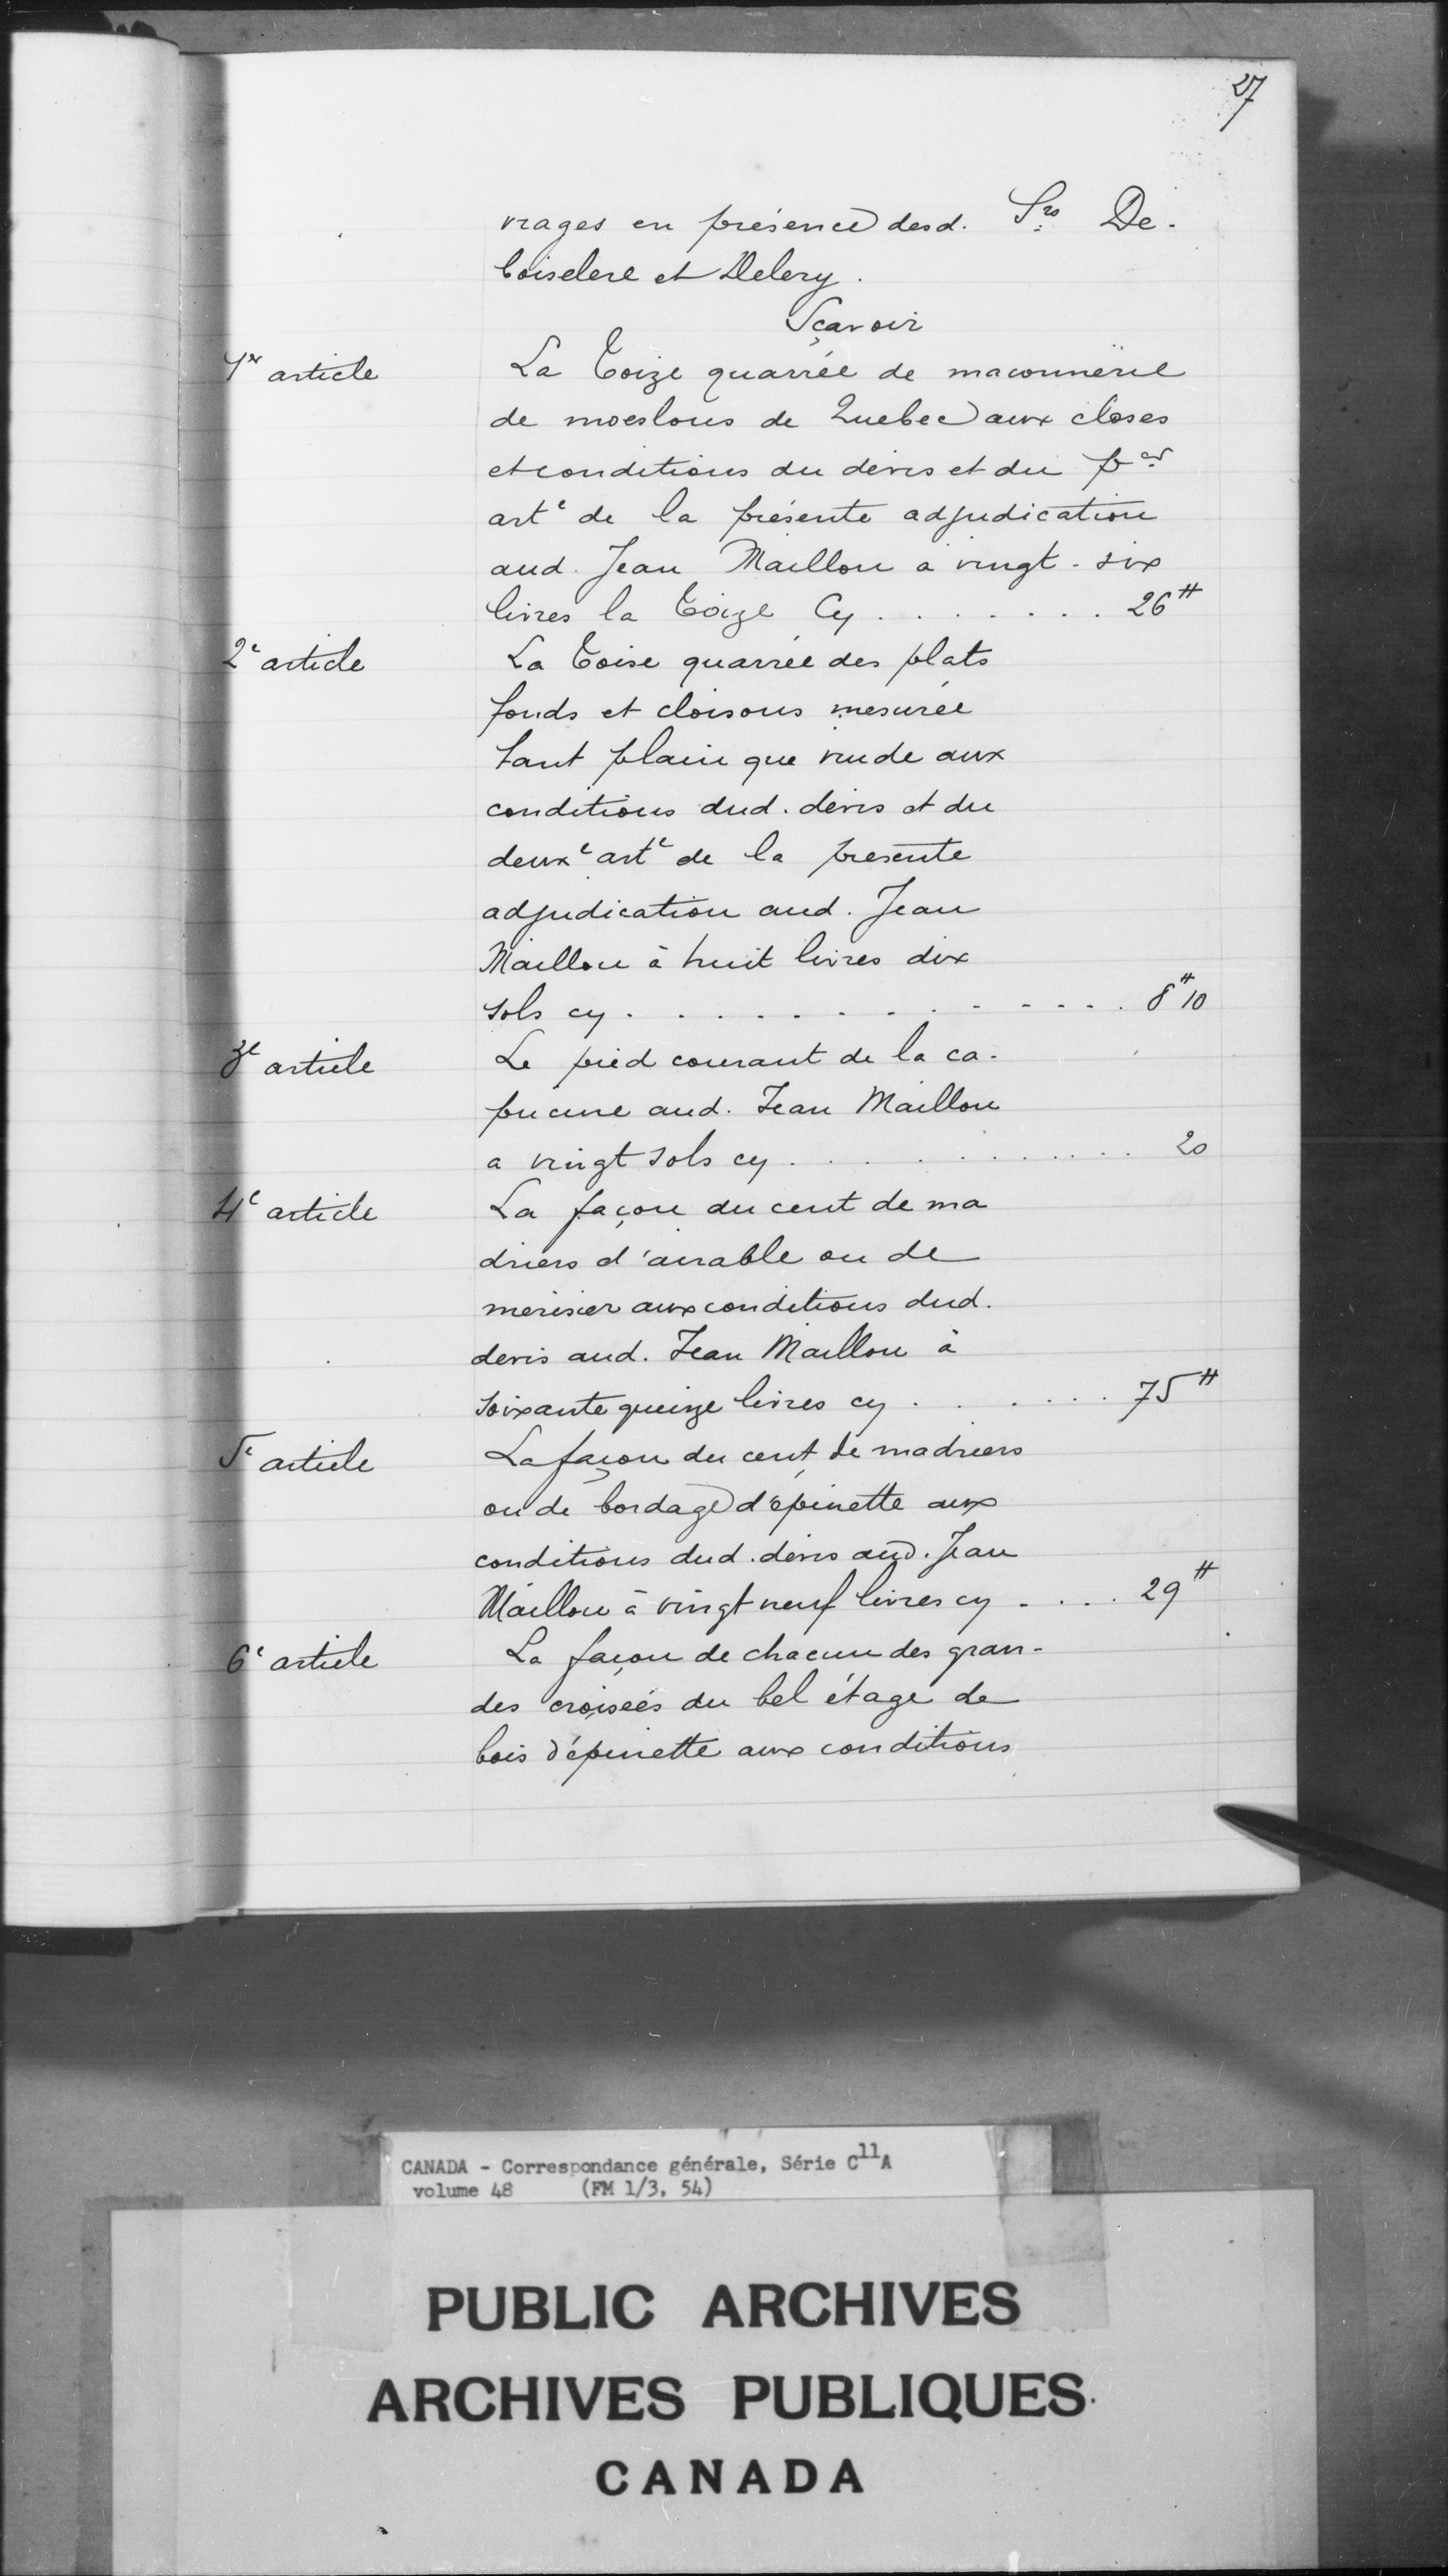 27
vrages en présence desd. Srs De-
boisclere et Delery.
Sçavoir
1er article La Toize quarrée de maconnerie
de moeslons de Quebec aux closes
et conditions du devis et du per
arte de la présente adjudication
aud. Jean Maillou a vingt-six
livres la Toize Cy . . . . . . . 26#
2e article La Toise quarrée des plats
fonds et cloisons mesurée
tant plain que vuide aux
conditions dud. devis et du
deuxe arte de la presente
adjudication aud. Jean
Maillou à huit livres dix
sols cy . . . . . . . . . . . . 8# 10
3e article Le pied courant de la ca-
pucine aud. Jean Maillou
a vingt sols cy . . . . . . . . . . 20
4e article La façon du cent de ma
driers d'airable ou de
merisier aux conditions dud.
devis aud. Jean Maillou à
soixante quinze livres cy . . . . . . 75#
5e article La façon du cent de madriers
ou de bordage d'epinette aux
conditions dud. devis aud. Jean
Maillou à vingt neuf livres cy . . . . 29#
6e article La façon de chacun des gran-
des croiseés du bel étage de
bois d'épinette aux conditions
CANADA - Correspondance générale, Série C11A
volume 48 (FM 1/3, 54)
PUBLIC ARCHIVES
ARCHIVES PUBLIQUES
CANADA